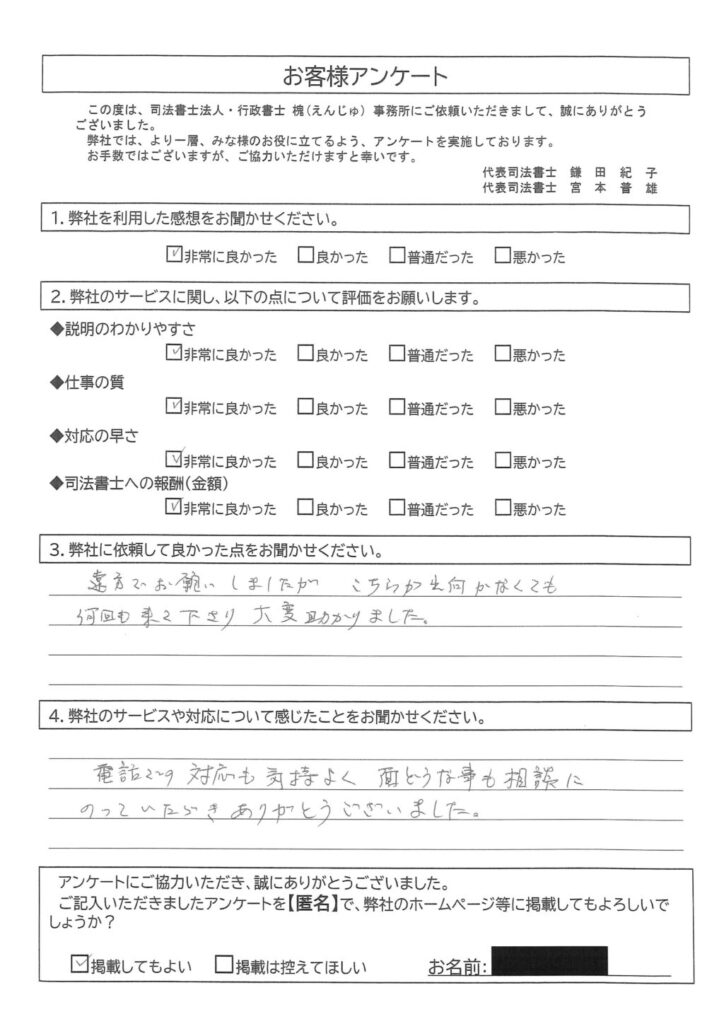 お客様アンケート
この度は、司法書士法人・行政書士 槐(えんじゅ) 事務所にご依頼いただきまして、誠にありがとう
ございました。
弊社では、より一層、みな様のお役に立てるよう、アンケートを実施しております。
お手数ではございますが、ご協力いただけますと幸いです。
代表司法書士 鎌 田 紀 子
代表司法書士 宮 本 普 雄
1. 弊社を利用した感想をお聞かせください。
☑非常に良かった □良かった □普通だった □悪かった
2. 弊社のサービスに関し、以下の点について評価をお願いします。
◆説明のわかりやすさ
☑非常に良かった □良かった □普通だった □悪かった
◆仕事の質
☑非常に良かった □良かった □普通だった □悪かった
◆対応の早さ
☑非常に良かった □良かった □普通だった □悪かった
◆司法書士への報酬(金額)
☑非常に良かった □良かった □普通だった □悪かった
3. 弊社に依頼して良かった点をお聞かせください。
遠方でお願いしましたが こちらが出向かなくても
何回も来て下さり 大変助かりました。
4. 弊社のサービスや対応について感じたことをお聞かせください。
電話での対応も気持よく 面どうな事も相談に
のっていただきありがとうございました。
アンケートにご協力いただき、誠にありがとうございました。
ご記入いただきましたアンケートを【匿名】で、弊社のホームページ等に掲載してもよろしいで
しょうか？
☑掲載してもよい □掲載は控えてほしい お名前: